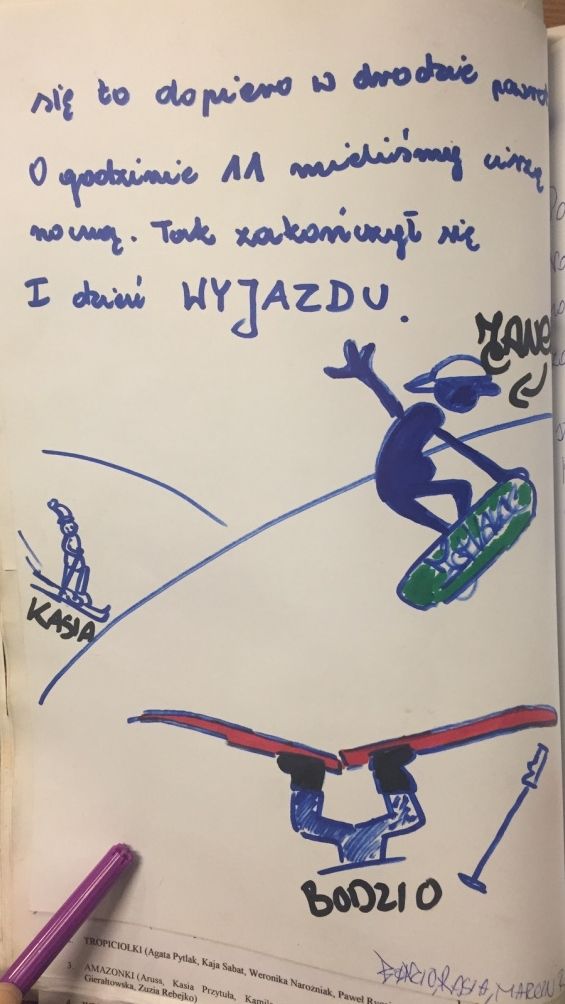 się to dopiero w drodze
O godzinie 11 mieliśmy ciszę
nocną. Tak zakończył się
I dzień WYJAZDU.
KASIA
BODZIO
TROPICIOLKI (Agata Pytlak, Kaja Sabat, Weronika Narozniak, Paweł
3. AMAZONKI (Aruss, Kasia Przytuła,
Gierałtowska, Zuzia Rębejko)
MARCIN